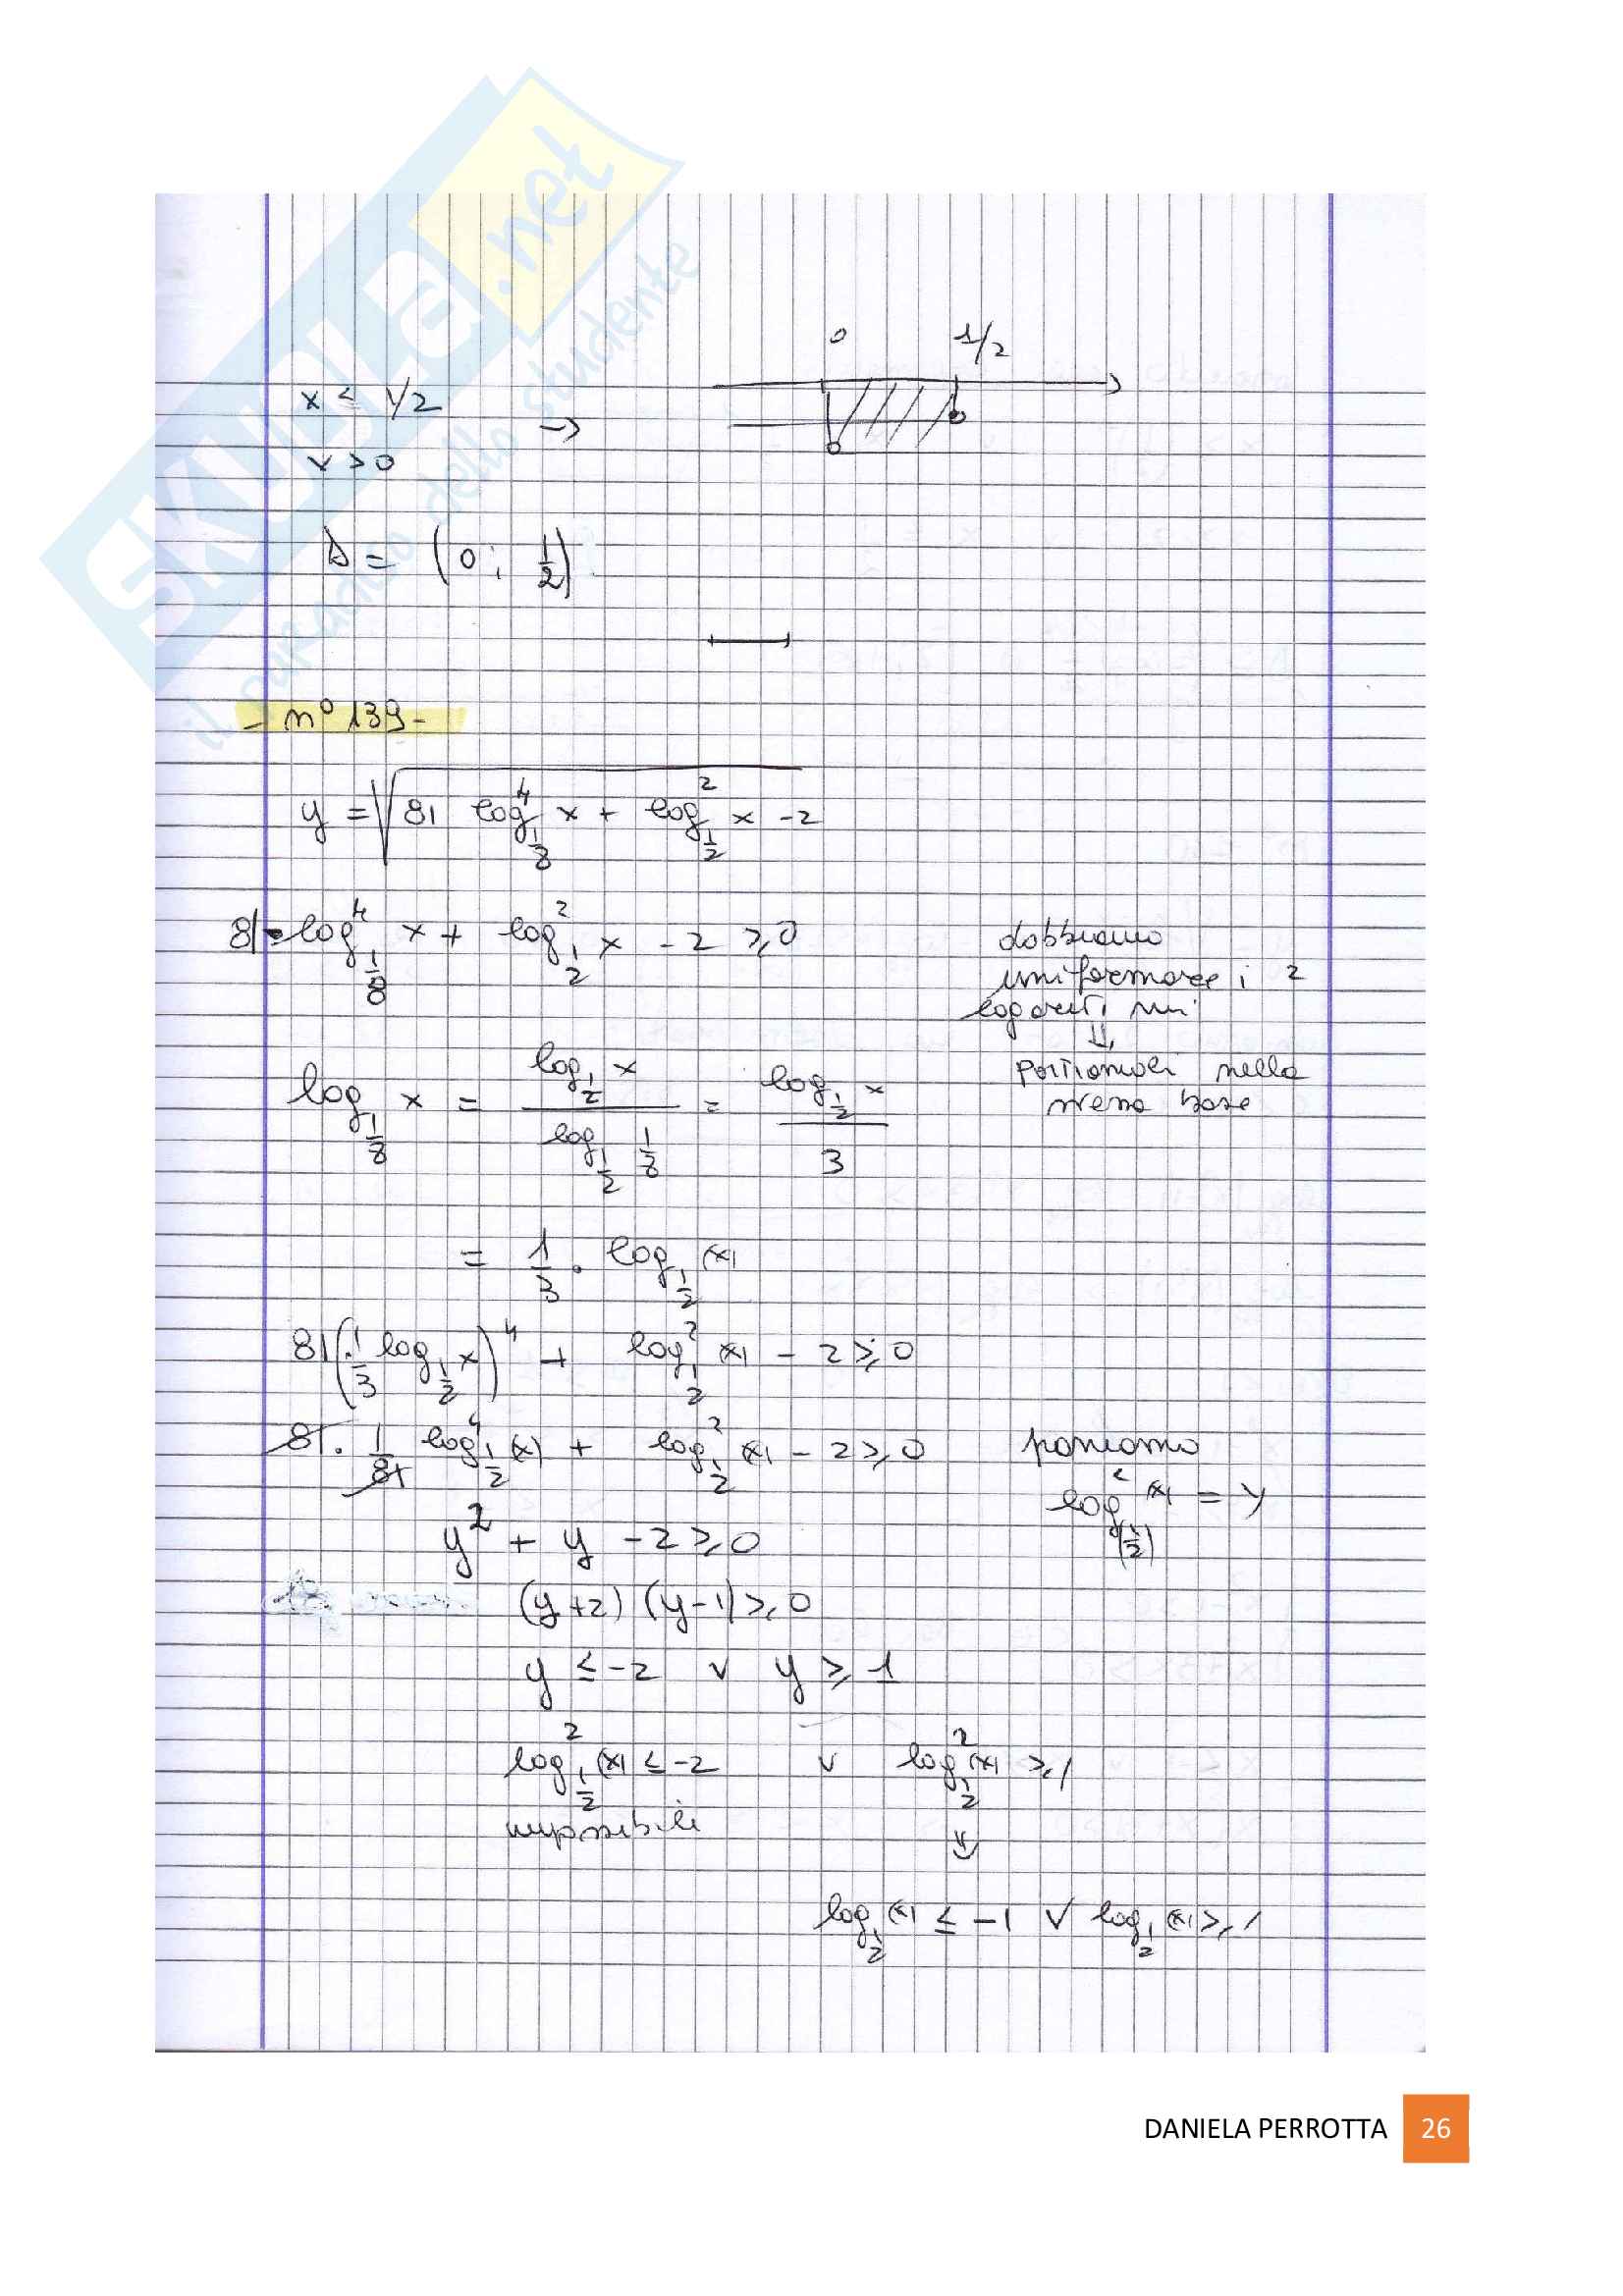 SKUOLA.net
il paradiso dello studente
0 1/2
x < 1/2 →
x > 0
D = (0; 1/2)
- n° 139 -
y = √(81 log⁴_{1/8} x + log²_{1/2} x - 2)
81 log⁴_{1/8} x + log²_{1/2} x - 2 ≥ 0
dobbiamo
uniformare i 2
logaritmi
⇓
portiamoli nella
stessa base
log_{1/8} x = (log_{1/2} x)/(log_{1/2} 1/8) = (log_{1/2} x)/3
= 1/3 · log_{1/2} (x)
81 (1/3 log_{1/2} x)⁴ + log²_{1/2} (x) - 2 ≥ 0
81 · 1/81 log⁴_{1/2} (x) + log²_{1/2} (x) - 2 ≥ 0
poniamo
log²_{(1/2)} (x) = y
y² + y - 2 ≥ 0
(y+2) (y-1) ≥ 0
y ≤ -2 ∨ y ≥ 1
log²_{1/2} (x) ≤ -2 ∨ log²_{1/2} (x) ≥ 1
impossibile ⇓
log_{1/2} (x) ≤ -1 ∨ log_{1/2} (x) ≥ 1
DANIELA PERROTTA 26